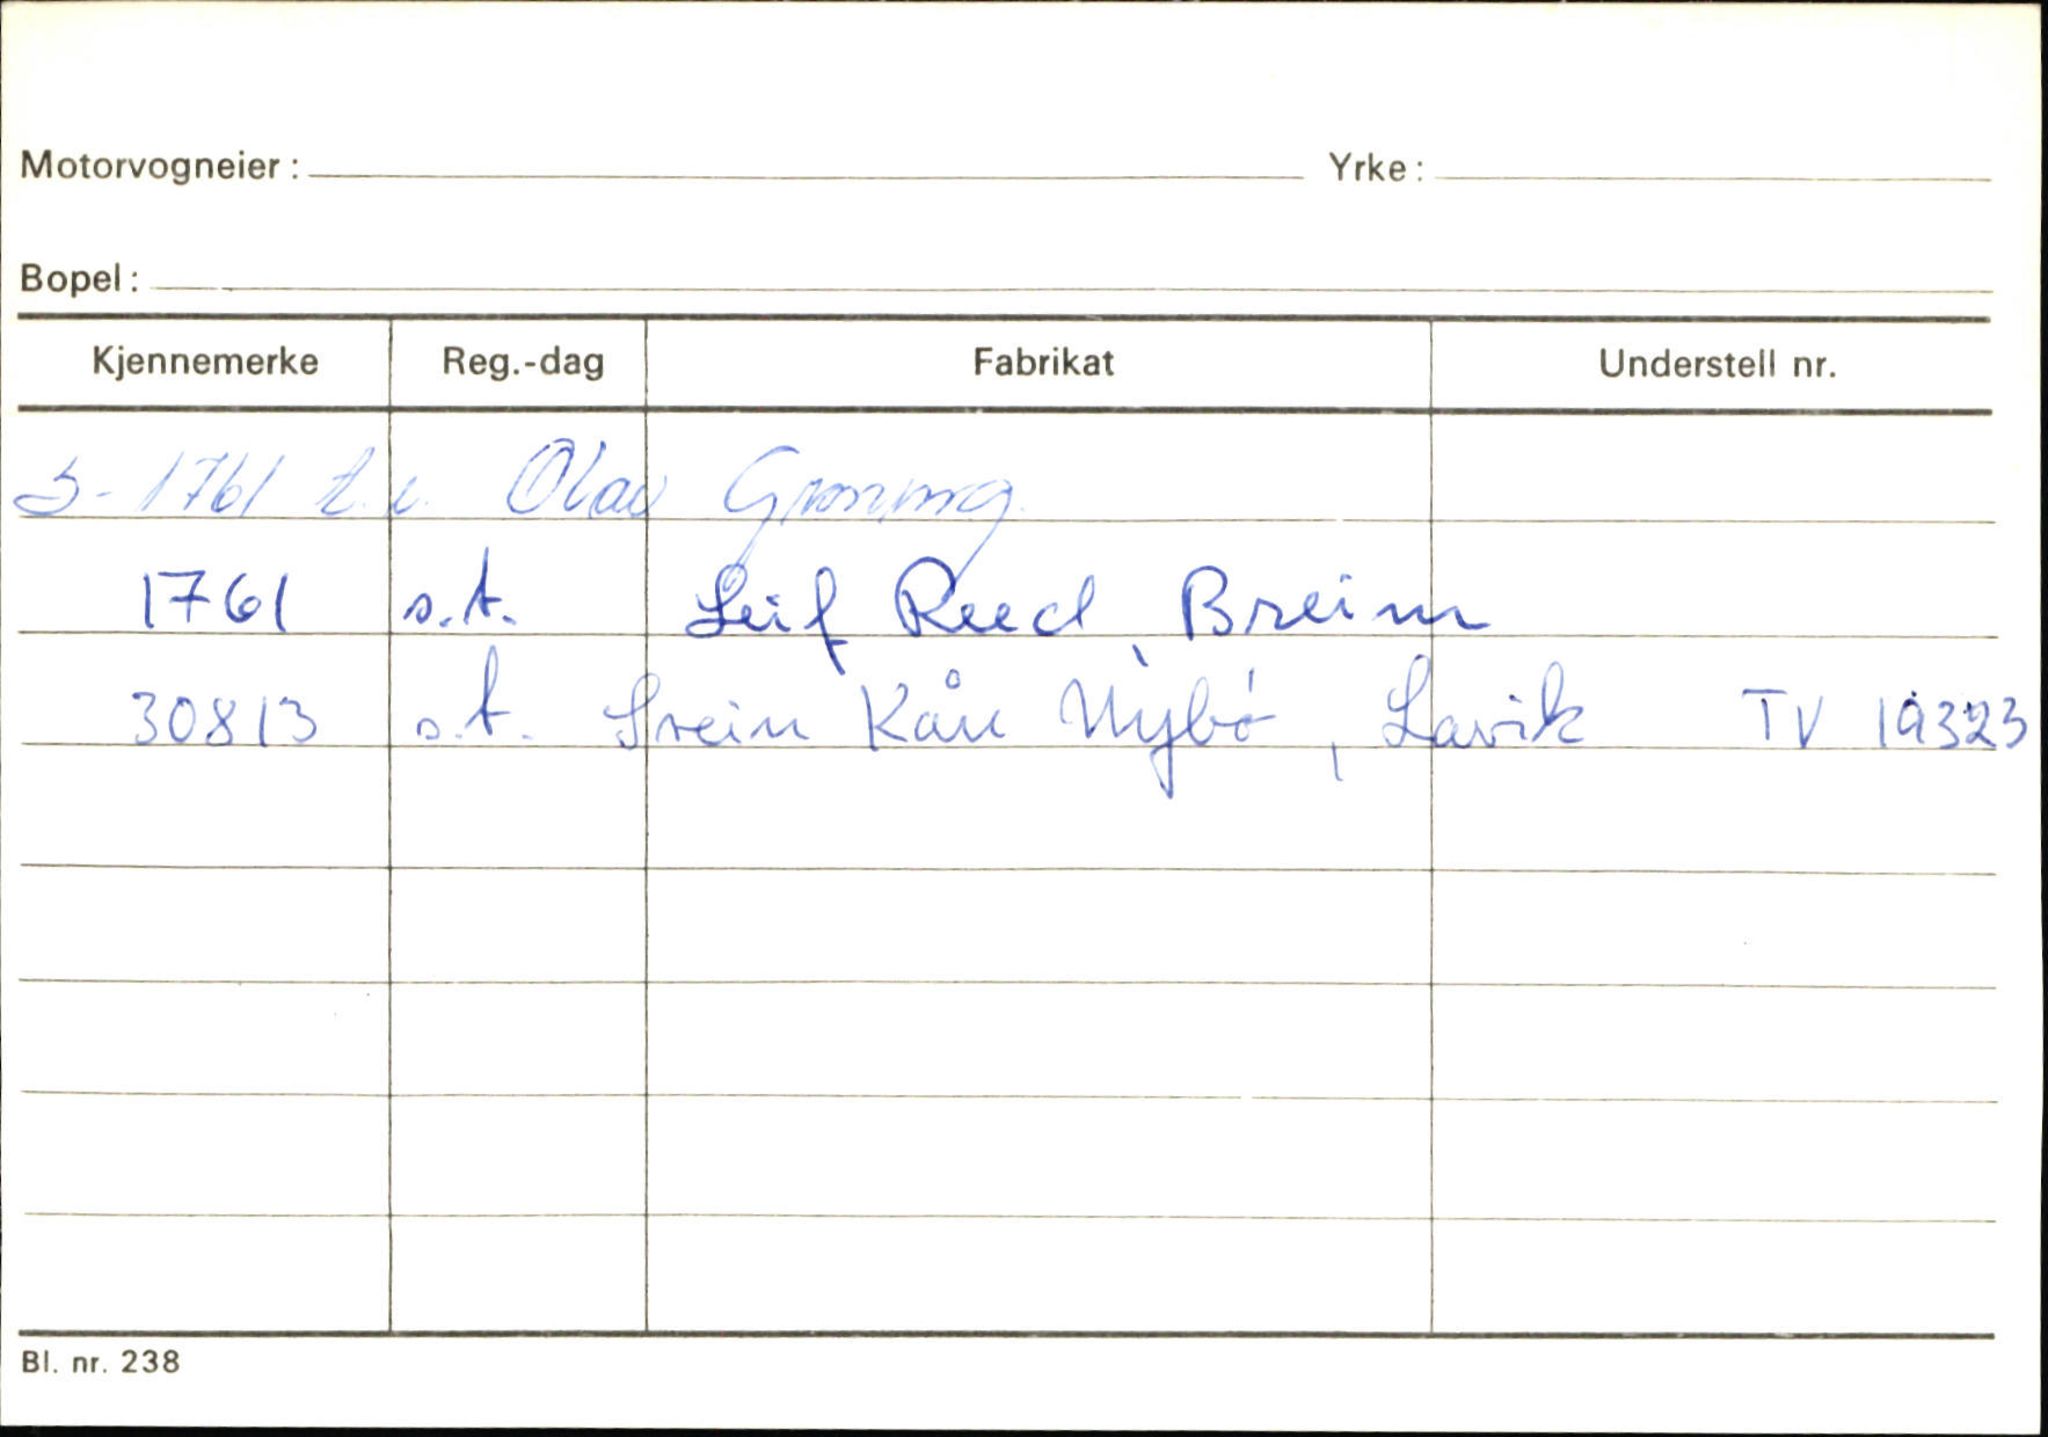 Motorvogneier: Yrke:
Bopel:
Kjennemerke Reg.-dag Fabrikat Understell nr.
S-1761 t.v. Olav
1761 s.t. Leif Reed, Breim
30813 s.t. Svein Kåre Nybø, Lavik TV 19323
Bl. nr. 238